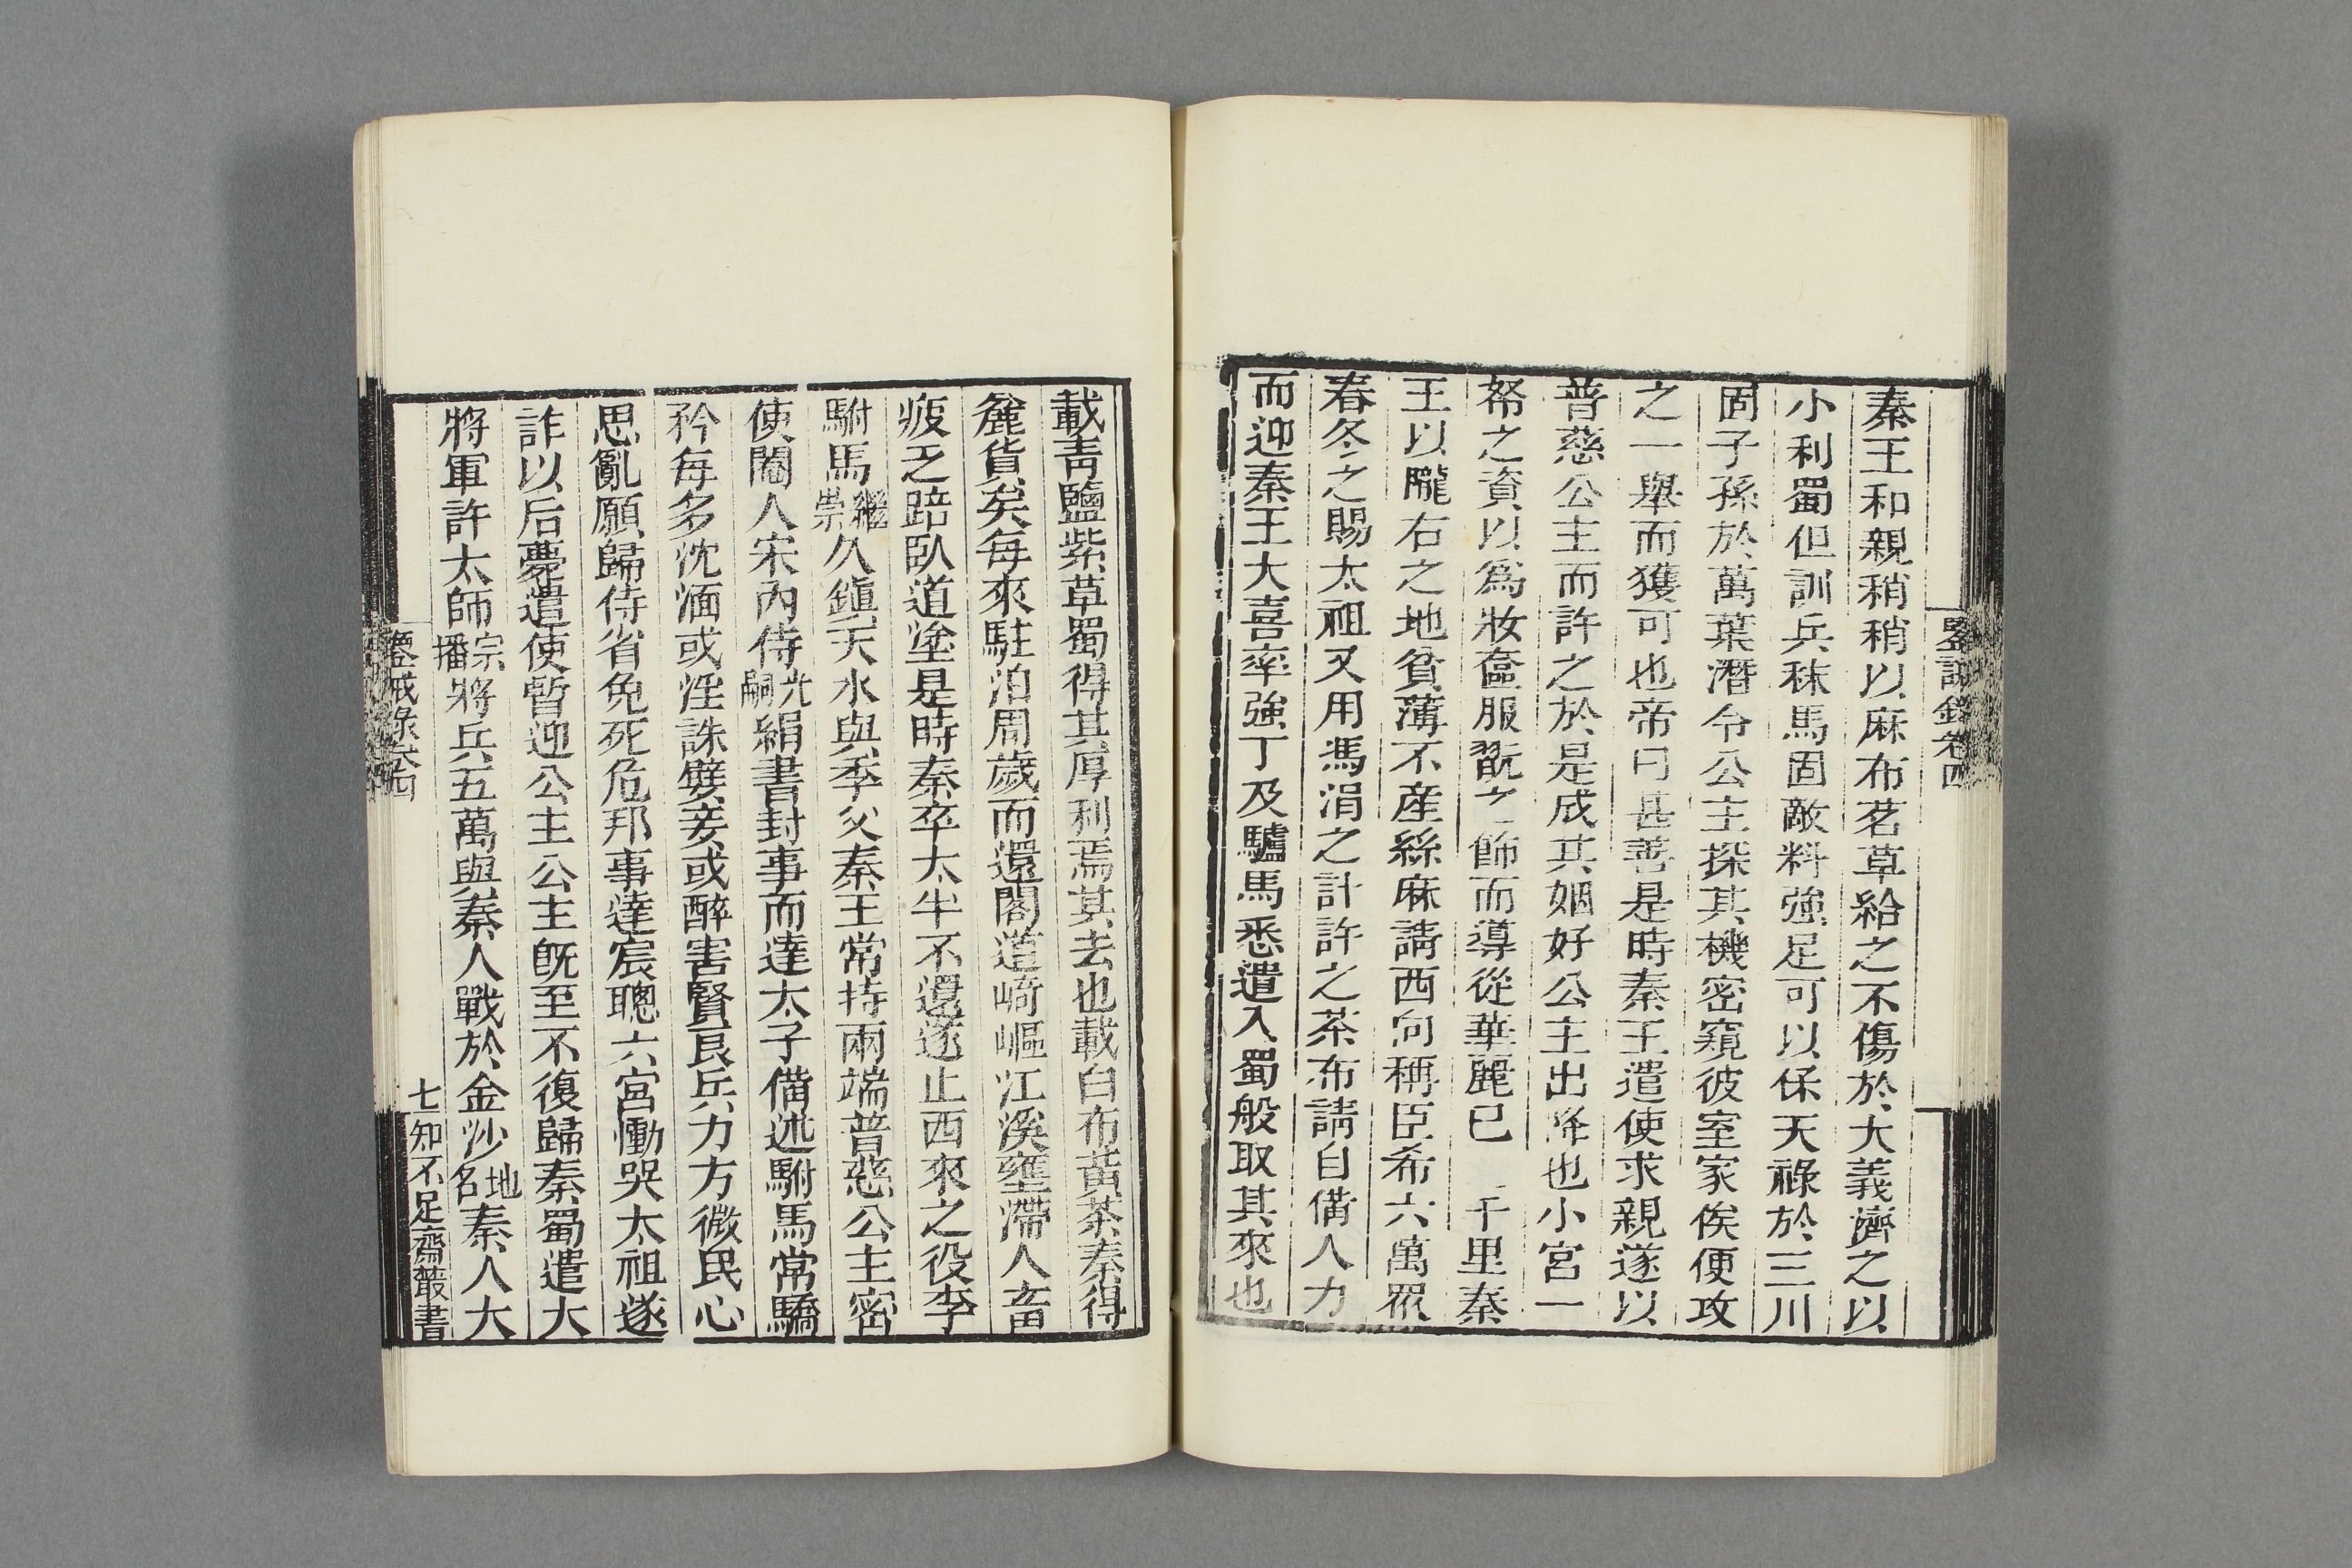 鑒誡錄卷四
秦王和親稍稍以麻布茗草給之不傷於大義濟之以
小利蜀但訓兵秣馬固敵料強足可以保天祿於三川
固子孫於萬葉潛令公主探其機密窺彼室家俟便攻
之一舉而獲可也帝曰甚善是時秦王遣使求親遂以
普慈公主而許之於是成其姻好公主出降也小宮一
帑之資以爲妝奩服翫之飾而導從華麗已 千里秦
王以隴右之地貧薄不產絲麻請西向稱臣希六萬眾
春冬之賜太祖又用馮涓之計許之茶布請自備人力
而迎秦王大喜率強丁及驢馬悉遣入蜀般取其來也
載青鹽紫草蜀得其厚利焉其去也載白布黃茶秦得
麄貨矣每來駐泊周歲而還閣道崎嶇江溪壅滯人畜
疲乏踣臥道塗是時秦卒太半不還遂止西來之役李
駙馬繼崇久鎭天水與季父秦王常持兩端普慈公主密
使閹人宋內侍光嗣絹書封事而達太子備述駙馬常驕
矜每多沈湎或淫誅嬖妾或醉害賢良兵力方微民心
思亂願歸侍省免死危邦事達宸聰六宮慟哭太祖遂
詐以后薨遣使暫迎公主公主既至不復歸秦蜀遣大
將軍許太師宗播將兵五萬與秦人戰於金沙地名秦人大
鑒戒錄卷四
七
知不足齋叢書